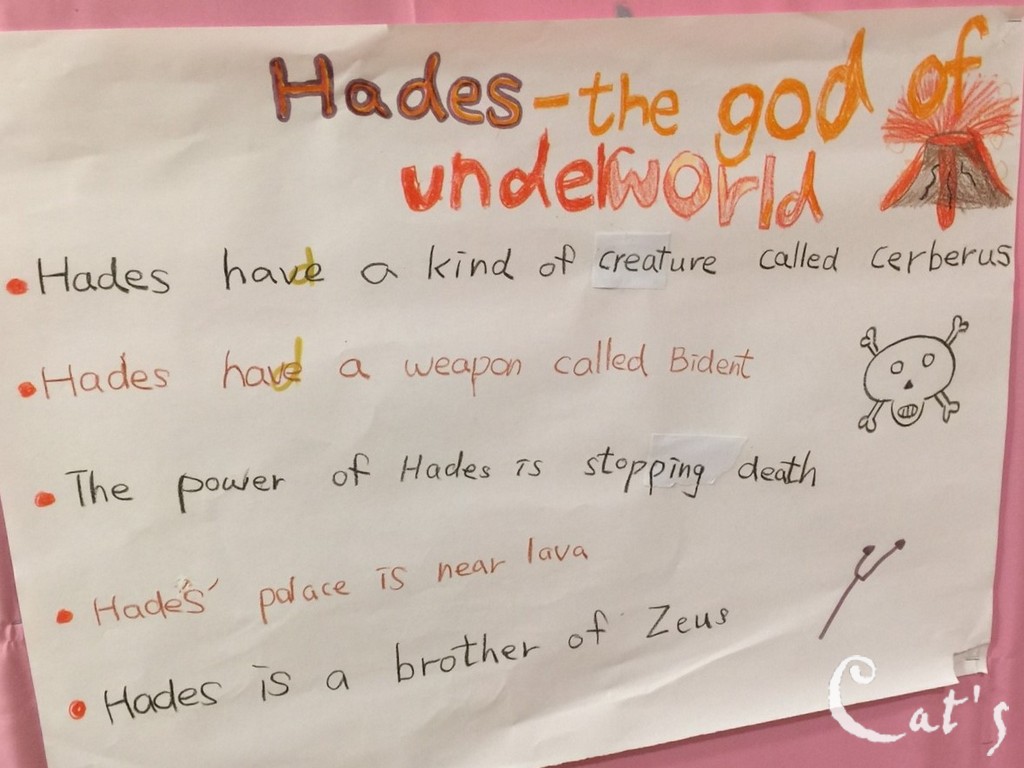 Hades-the god of
underworld
• Hades have a kind of creature called cerberus
• Hades have a weapon called Bident
• The power of Hades is stopping death
• Hades' palace is near lava
• Hades is a brother of Zeus
Cat's